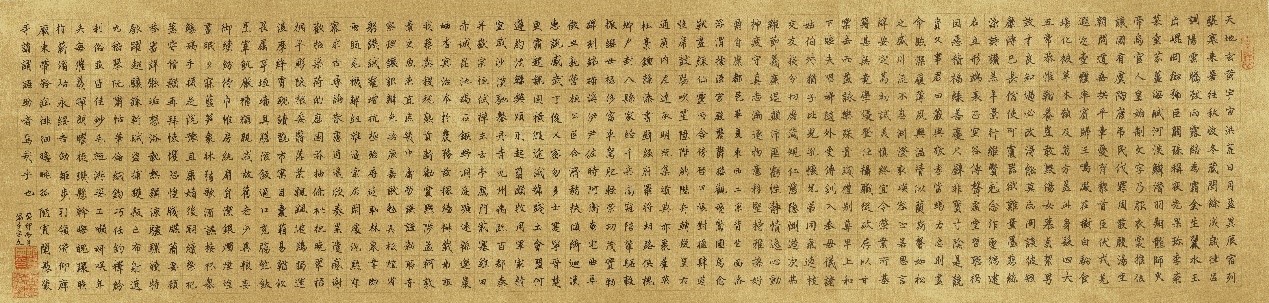 天地玄黃宇宙洪荒日月盈昃辰宿列
張寒來暑往秋收冬藏閏餘成歲律呂
調陽雲騰致雨露結為霜金生麗水玉
出崑岡劍號巨闕珠稱夜光果珍李柰
菜重芥薑海鹹河淡鱗潛羽翔龍師火
帝鳥官人皇始制文字乃服衣裳推位
讓國有虞陶唐弔民伐罪周發殷湯坐
朝問道垂拱平章愛育黎首臣伏戎羌
遐邇壹體率賓歸王鳴鳳在樹白駒食
場化被草木賴及萬方蓋此身髮四大
五常恭惟鞠養豈敢毀傷女慕貞絜男
效才良知過必改得能莫忘罔談彼短
靡恃己長信使可覆器欲難量墨悲絲
染詩讚羔羊景行維賢克念作聖德建
名立形端表正空谷傳聲虛堂習聽禍
因惡積福緣善慶尺璧非寶寸陰是競
資父事君曰嚴與敬孝當竭力忠則盡
命臨深履薄夙興溫凊似蘭斯馨如松
之盛川流不息淵澄取映容止若思言
辭安定篤初誠美慎終宜令榮業所基
籍甚無竟學優登仕攝職從政存以甘
棠去而益詠樂殊貴賤禮別尊卑上和
下睦夫唱婦隨外受傅訓入奉母儀諸
姑伯叔猶子比兒孔懷兄弟同氣連枝
交友投分切磨箴規仁慈隱惻造次弗
離節義廉退顛沛匪虧性靜情逸心動
神疲守真志滿逐物意移堅持雅操好
爵自縻都邑華夏東西二京背邙面洛
浮渭據涇宮殿盤鬱樓觀飛驚圖寫禽
獸畫綵仙靈丙舍傍啟甲帳對楹肆筵
設席鼓瑟吹笙陞階納陛弁轉疑星右
通廣內左達承明既集墳典亦聚群英
杜稿鍾隸漆書壁經府羅將相路俠槐
卿戶封八縣家給千兵高冠陪輦驅轂
振纓世祿侈富車駕肥輕策功茂實勒
碑刻銘磻溪伊尹佐時阿衡奄宅曲阜
微旦孰營桓公匡合濟弱扶傾綺迴漢
惠說感武丁俊乂密勿多士寔寧晉楚
更霸趙魏困橫假途滅虢踐土會盟何
遵約法韓弊煩刑起翦頗牧用軍最精
宣威沙漠馳譽丹青九州禹跡百郡秦
并嶽宗恆岱禪主云亭雁門紫塞雞田
赤城昆池碣石鉅野洞庭曠遠綿邈巖
岫杳冥治本於農務茲稼穡俶載南畝
我藝黍稷稅熟貢新勸賞黜陟孟軻敦
素史魚秉直庶幾中庸勞謙謹敕聆音
察理鑑貌辨色貽厥嘉猷勉其祗植省
躬譏誡寵增抗極殆辱近恥林皋幸即
兩疏見機解組誰逼索居閒處沉默寂
寥求古尋論散慮逍遙欣奏累遣慼謝
歡招渠荷的歷園莽抽條枇杷晚翠梧
桐早凋陳根委翳落葉飄颻遊鵾獨運
凌摩絳霄耽讀翫市寓目囊箱易輶攸
畏屬耳垣牆具膳餐飯適口充腸飽飫
烹宰飢厭糟糠親戚故舊老少異糧妾
御績紡侍巾帷房紈扇圓潔銀燭煒煌
晝眠夕寐藍筍象床絃歌酒讌接杯舉
觴矯手頓足悅豫且康嫡後嗣續祭祀
烝嘗稽顙再拜悚懼恐惶牋牒簡要顧
答審詳骸垢想浴執熱願涼驢騾犢特
駭躍超驤誅斬賊盜捕獲叛亡布射遼
丸嵇琴阮嘯恬筆倫紙鈞巧任釣釋紛
利俗並皆佳妙毛施淑姿工顰妍笑年
矢每催曦暉朗曜璇璣懸斡晦魄環照
指薪修祜永綏吉劭矩步引領俯仰廊
廟束帶矜莊徘徊瞻眺孤陋寡聞愚蒙
等誚謂語助者焉哉乎也